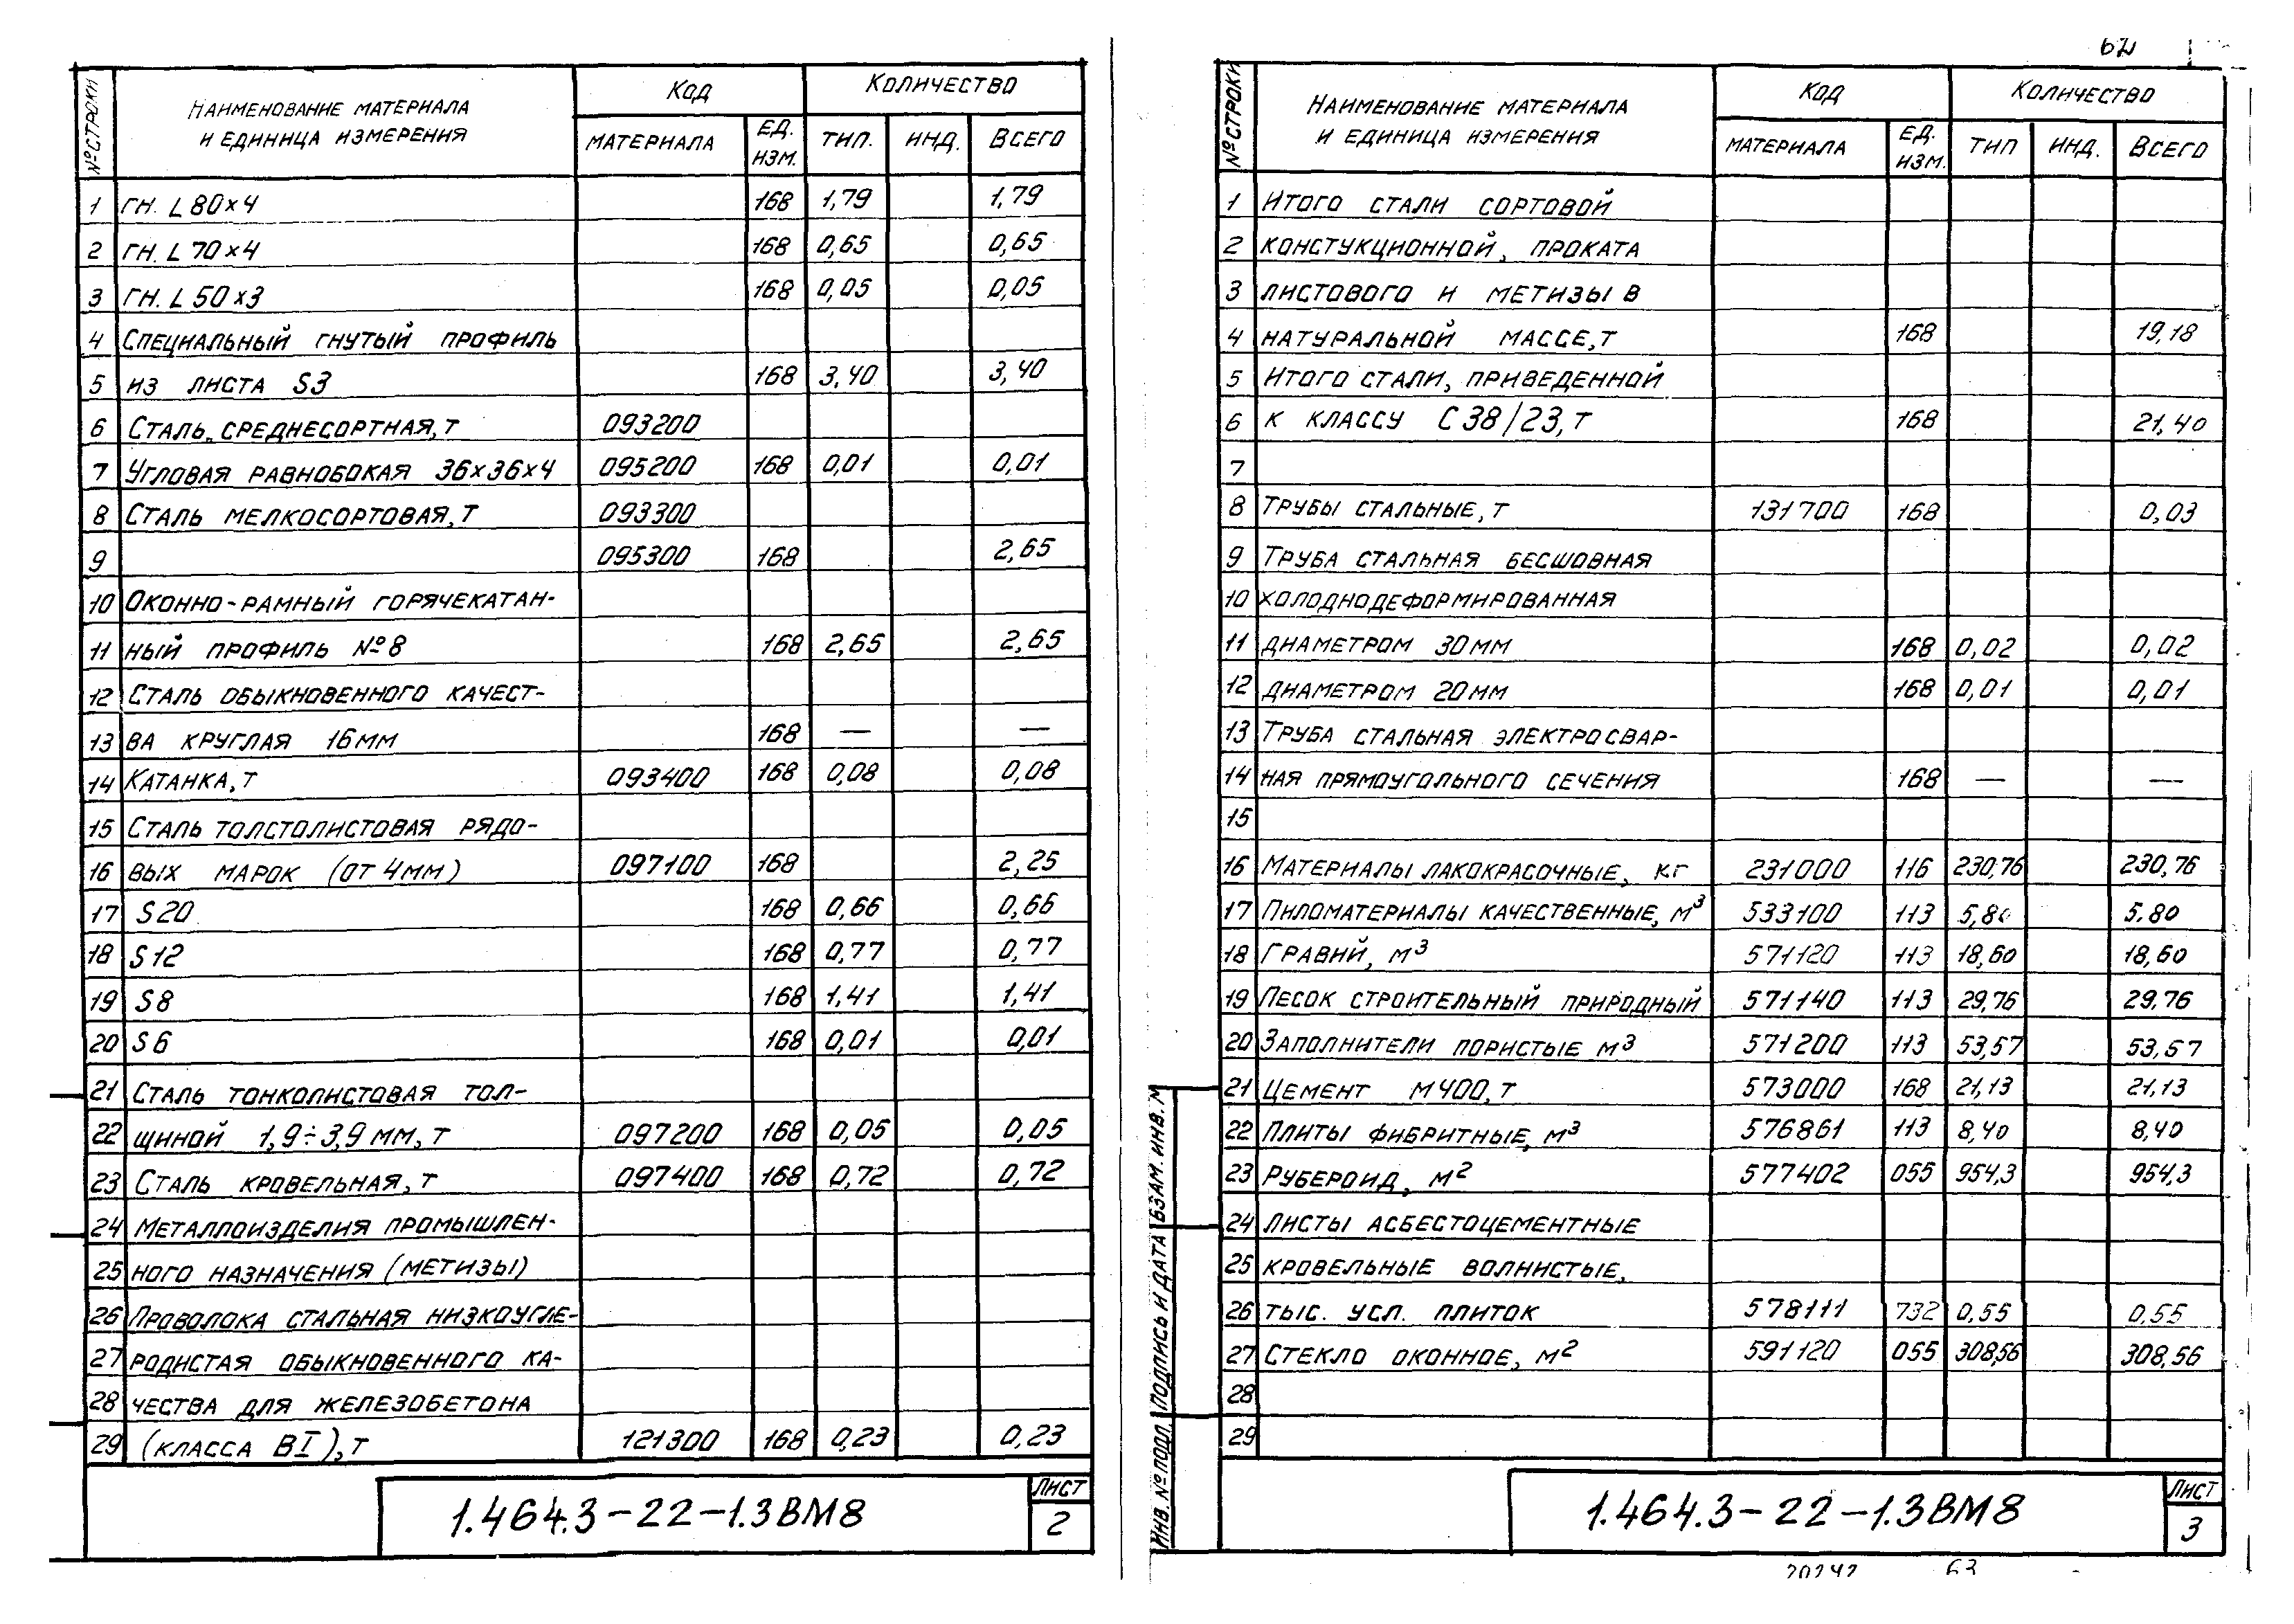 № СТРОКИ | НАИМЕНОВАНИЕ МАТЕРИАЛА И ЕДИНИЦА ИЗМЕРЕНИЯ | КОД | КОЛИЧЕСТВО
МАТЕРИАЛА | ЕД. ИЗМ. | ТИП. | ИНД. | ВСЕГО
1 ГН. L 80×4 168 1,79 1,79
2 ГН. L 70×4 168 0,65 0,65
3 ГН. L 50×3 168 0,05 0,05
4 СПЕЦИАЛЬНЫЙ ГНУТЫЙ ПРОФИЛЬ
5 ИЗ ЛИСТА S3 168 3,40 3,40
6 СТАЛЬ СРЕДНЕСОРТНАЯ, Т 093200
7 УГЛОВАЯ РАВНОБОКАЯ 36×36×4 095200 168 0,01 0,01
8 СТАЛЬ МЕЛКОСОРТОВАЯ, Т 093300
9 095300 168 2,65
10 ОКОННО-РАМНЫЙ ГОРЯЧЕКАТАН-
11 НЫЙ ПРОФИЛЬ №8 168 2,65 2,65
12 СТАЛЬ ОБЫКНОВЕННОГО КАЧЕСТ-
13 ВА КРУГЛАЯ 16ММ 168 — —
14 КАТАНКА, Т 093400 168 0,08 0,08
15 СТАЛЬ ТОЛСТОЛИСТОВАЯ РЯДО-
16 ВЫХ МАРОК (ОТ 4ММ) 097100 168 2,25
17 S20 168 0,66 0,66
18 S12 168 0,77 0,77
19 S8 168 1,41 1,41
20 S6 168 0,01 0,01
21 СТАЛЬ ТОНКОЛИСТОВАЯ ТОЛ-
22 ЩИНОЙ 1,9÷3,9 ММ, Т 097200 168 0,05 0,05
23 СТАЛЬ КРОВЕЛЬНАЯ, Т 097400 168 0,72 0,72
24 МЕТАЛЛОИЗДЕЛИЯ ПРОМЫШЛЕН-
25 НОГО НАЗНАЧЕНИЯ (МЕТИЗЫ)
26 ПРОВОЛОКА СТАЛЬНАЯ НИЗКОУГЛЕ-
27 РОДИСТАЯ ОБЫКНОВЕННОГО КА-
28 ЧЕСТВА ДЛЯ ЖЕЛЕЗОБЕТОНА
29 (КЛАССА ВI), Т 121300 168 0,23 0,23
1.464.3-22-1.3ВМ8
ЛИСТ
2
62
№ СТРОКИ | НАИМЕНОВАНИЕ МАТЕРИАЛА И ЕДИНИЦА ИЗМЕРЕНИЯ | КОД | КОЛИЧЕСТВО
МАТЕРИАЛА | ЕД. ИЗМ. | ТИП | ИНД. | ВСЕГО
1 ИТОГО СТАЛИ СОРТОВОЙ
2 КОНСТУКЦИОННОЙ, ПРОКАТА
3 ЛИСТОВОГО И МЕТИЗЫ В
4 НАТУРАЛЬНОЙ МАССЕ, Т 168 19,18
5 ИТОГО СТАЛИ, ПРИВЕДЕННОЙ
6 К КЛАССУ С 38/23, Т 168 21,40
7
8 ТРУБЫ СТАЛЬНЫЕ, Т 131700 168 0,03
9 ТРУБА СТАЛЬНАЯ БЕСШОВНАЯ
10 ХОЛОДНОДЕФОРМИРОВАННАЯ
11 ДИАМЕТРОМ 30ММ 168 0,02 0,02
12 ДИАМЕТРОМ 20ММ 168 0,01 0,01
13 ТРУБА СТАЛЬНАЯ ЭЛЕКТРОСВАР-
14 НАЯ ПРЯМОУГОЛЬНОГО СЕЧЕНИЯ 168 — —
15
16 МАТЕРИАЛЫ ЛАКОКРАСОЧНЫЕ, КГ 231000 116 230,76 230,76
17 ПИЛОМАТЕРИАЛЫ КАЧЕСТВЕННЫЕ, М³ 533100 113 5,80 5.80
18 ГРАВИЙ, М³ 571120 113 18,60 18,60
19 ПЕСОК СТРОИТЕЛЬНЫЙ ПРИРОДНЫЙ 571140 113 29,76 29,76
20 ЗАПОЛНИТЕЛИ ПОРИСТЫЕ М³ 571200 113 53,57 53,57
21 ЦЕМЕНТ М400, Т 573000 168 21,13 21,13
22 ПЛИТЫ ФИБРИТНЫЕ, М³ 576861 113 8,40 8,40
23 РУБЕРОИД, М² 577402 055 954,3 954,3
24 ЛИСТЫ АСБЕСТОЦЕМЕНТНЫЕ
25 КРОВЕЛЬНЫЕ ВОЛНИСТЫЕ,
26 ТЫС. УСЛ. ПЛИТОК 578111 732 0,55 0,55
27 СТЕКЛО ОКОННОЕ, М² 591120 055 308,56 308,56
28
29
ИНВ. № ПОДЛ. ПОДПИСЬ И ДАТА ВЗАМ. ИНВ. №
1.464.3-22-1.3ВМ8
ЛИСТ
3
20242 63